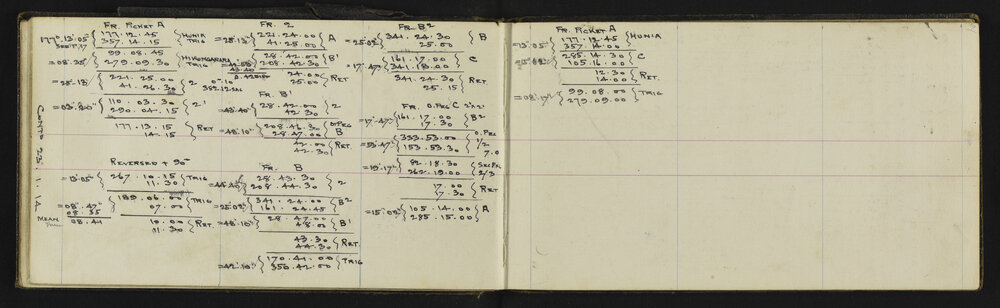 FR. PICKET A
177°.13'.05"
177.12.45 HUNIA
357.14.15 TRIG
99.08.45
279.09.30 TRIG
221.25.00
41.26.30 2
110.03.30
290.04.15 2'
177.13.15
14.15 RET
REVERSED + 90°
=13'.05" 267.10.15 TRIG
11.30
189.06.00 TRIG
07.00
=08'.47"
08.35
MEAN 08.41
10.00
11.30 RET.
FR. 2
221.24.00 A
41.25.00
28.42.00 B'
208.42.30
24.00 RET
25.00
FR. B'
28.42.00 2
42.30
208.46.30 O.PEG
28.47.00 B
=48'.10"
42.00 RET.
42.30
FR. B
28.43.30 2
208.44.30
=25'.02" 341.24.00 B2
161.24.45
=48'.10" 28.47.00 B'
48.00
43.30 RET.
44.30
=42'.10" 170.41.00 TRIG
350.42.00
FR. B2
=25'.02" 341.24.30 B
25.00
=17'.47" 161.17.00 C
341.18.00
341.24.30 RET.
25.15
FR. O.PEG C
=17'.47" 161.17.00 B2
17.30
=53'.47" 333.53.00 O.PEG
153.53.30 1/2
7.0
=19'.17" 82.18.30
262.19.00 2/3
17.00 RET
17.30
=15'.02" 105.14.00 A
285.15.00
FR. PICKET A
=13'.05" 177.12.45 HUNIA
357.14.00
285.14.30 C
105.16.00
12.30 RET.
14.00
99.08.00 TRIG
279.09.00